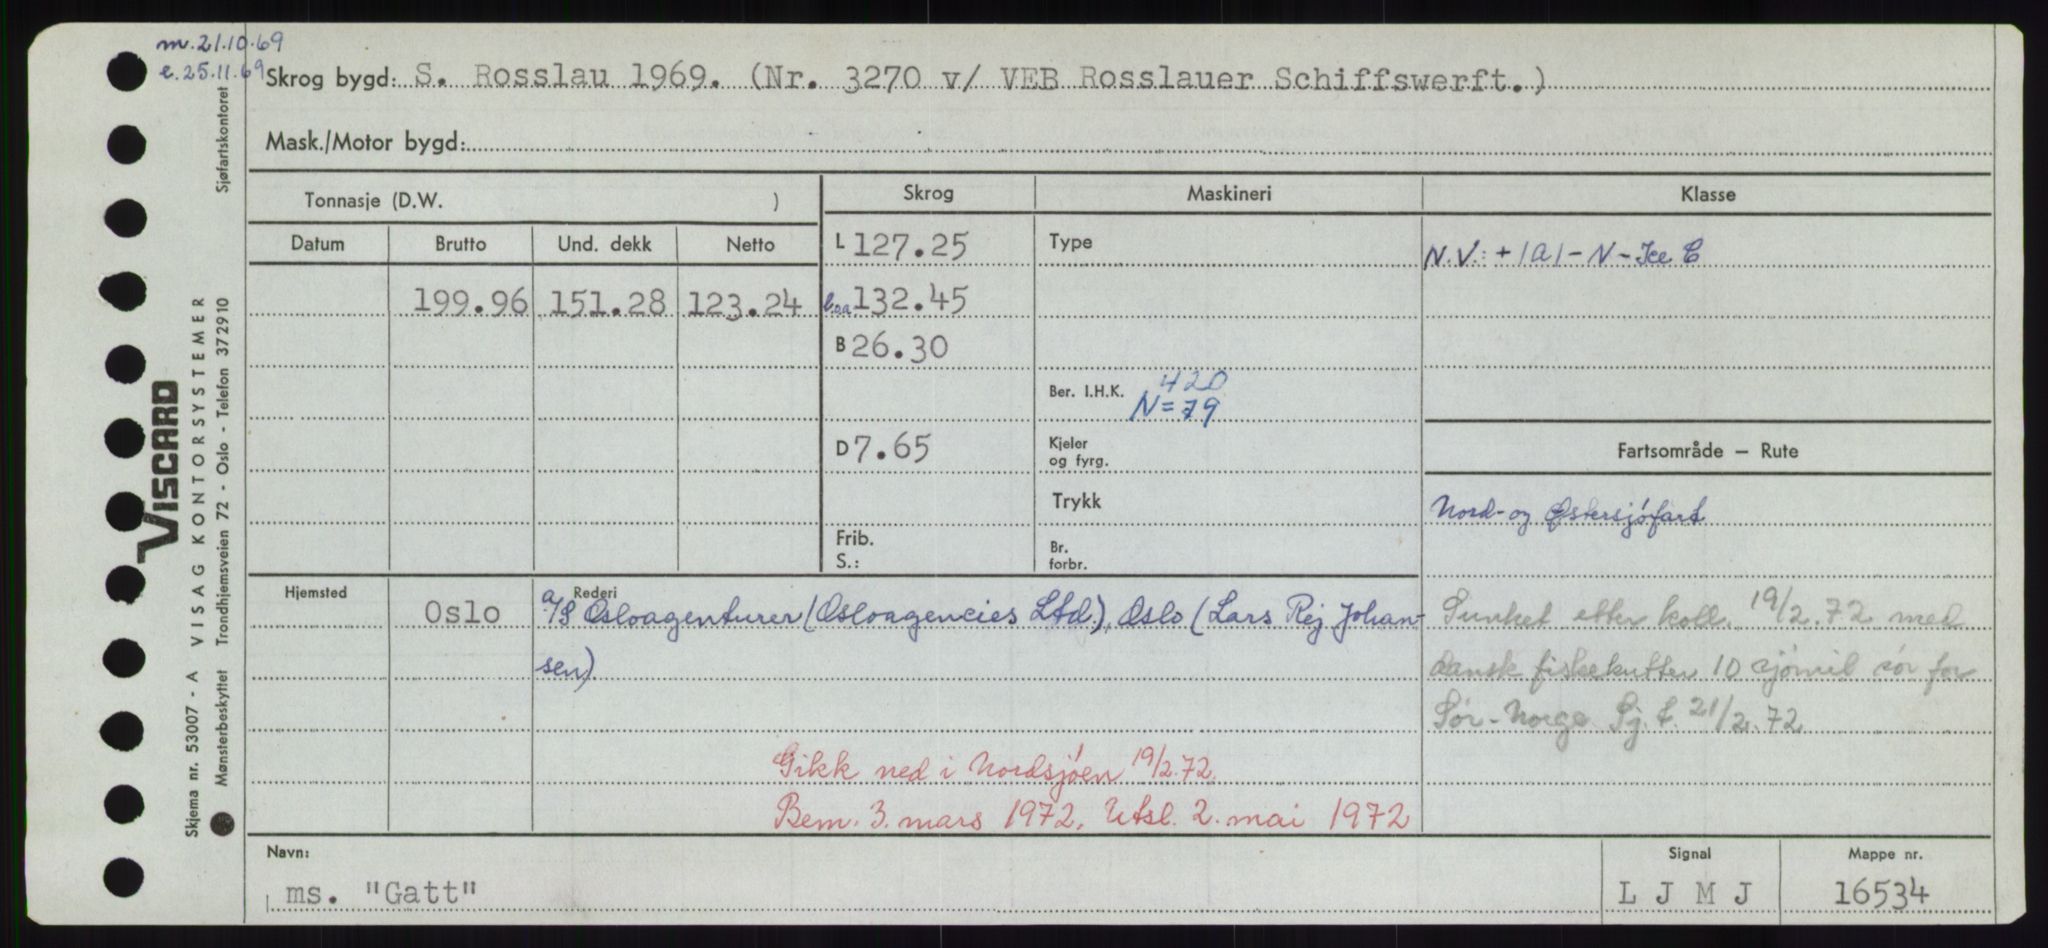 m. 21.10.69
e. 25.11.69
Skrog bygd: S. Rosslau 1969. (Nr. 3270 v/ VEB Rosslauer Schiffswerft.)
Mask./Motor bygd:
Tonnasje (D.W. )
Skrog
Maskineri
Klasse
Datum
Brutto
Und. dekk
Netto
L 127.25
Type
N.V.: + 1A1 - N - Ice C
199.96 151.28 123.24
l.o.a. 132.45
B 26.30
Ber. I.H.K. 420
N = 79
D 7.65
Kjeler
og fyrg.
Fartsområde — Rute
Trykk
Nord- og Østersjøfart
Frib.
S.:
Br.
forbr.
Hjemsted
Rederi
Oslo
A/S Osloagenturer (Osloagencies Ltd.), Oslo (Lars Rej Johan-
sen)
Sunket etter koll. 19/2.72 med
dansk fiskekutter 10 sjömil sör for
Sör-Norge Sj. f. 21/2.72
Gikk ned i Nordsjöen 19/2.72.
Bem. 3. mars 1972. Utsl. 2. mai 1972
Navn:
ms. "Gatt"
Signal
L J M J
Mappe nr.
16534
VISCARD
Skjema nr. 53007 - A VISAG KONTORSYSTEMER
Mønsterbeskyttet Trondhjemsveien 72 - Oslo - Telefon 372910 Sjøfartskontoret